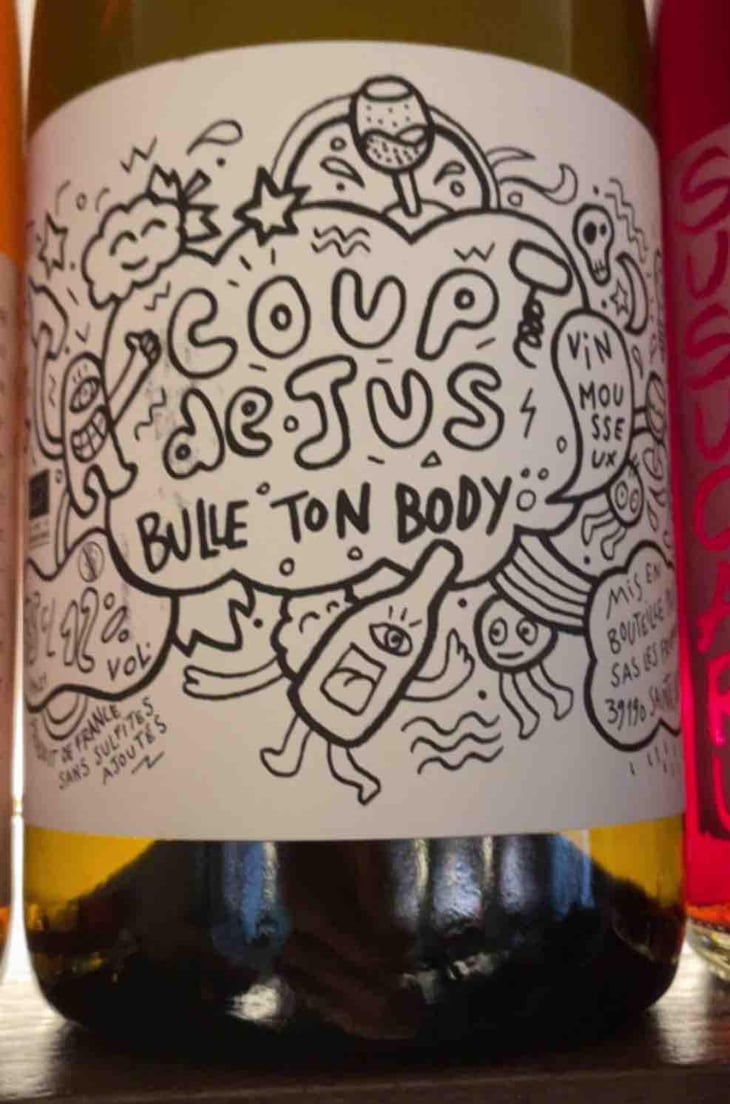 COUP
de JUS
BULLE TON BODY
ViN
MOU
SSE
UX
12%
VOL
DE FRANCE
SANS SULFITES
AJOUTÉS
MIS EN
BOUTEILLE
SAS LES
39190
SUSUCARU